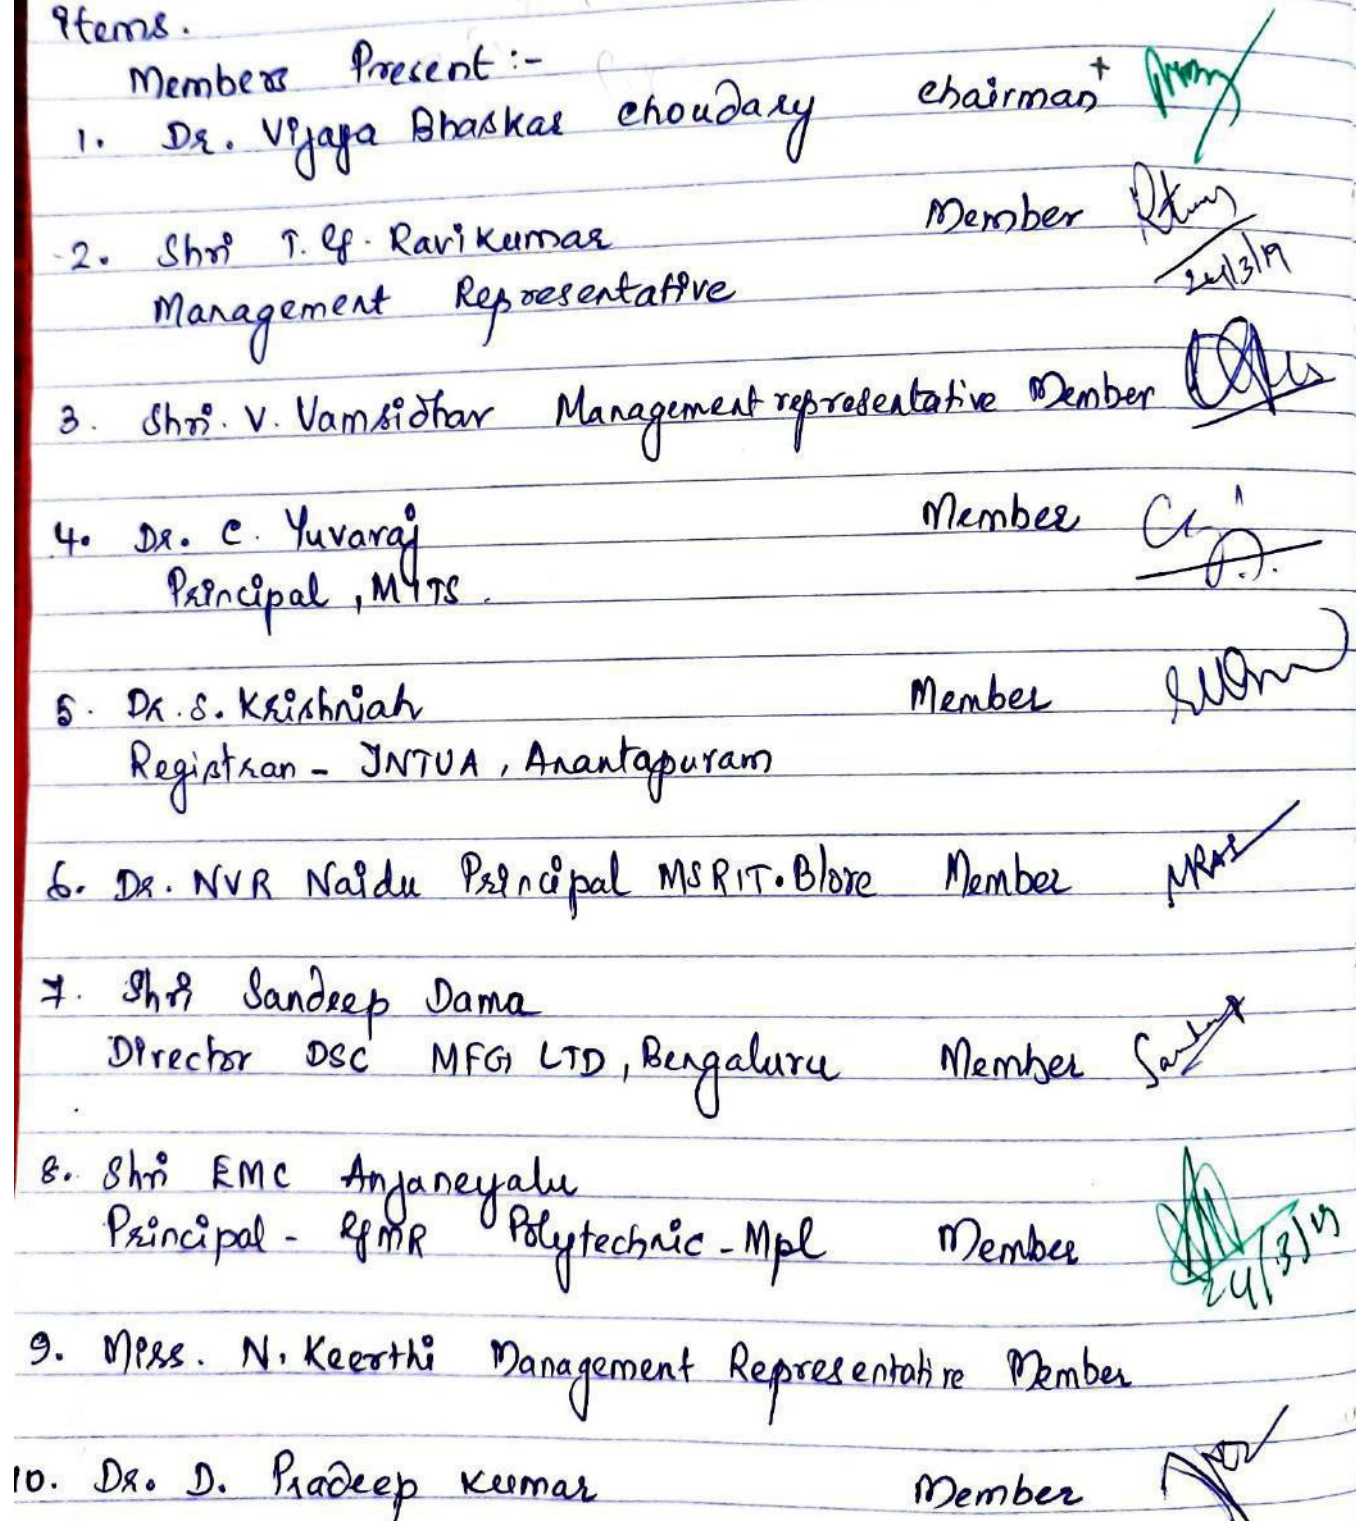 items.
Members Present :-
1. Dr. Vijaya Bhaskar choudary chairman
2. Shri T. G. Ravikumar Member
24/3/19
Management Representative
3. Shri. V. Vamsidhar Management representative Member
4. Dr. C. Yuvaraj Member
Principal, MITS.
5. Dr. S. Krishniah Member
Registrar - JNTUA, Anantapuram
6. Dr. NVR Naidu Principal MSRIT. Blore Member
7. Shri Sandeep Dama
Director DSC MFG LTD, Bengaluru Member
8. Shri EMC Anjaneyalu
Principal - GMR Polytechnic - Mpl Member
24/3/19
9. Miss. N. Keerthi Management Representative Member
10. Dr. D. Pradeep Kumar Member